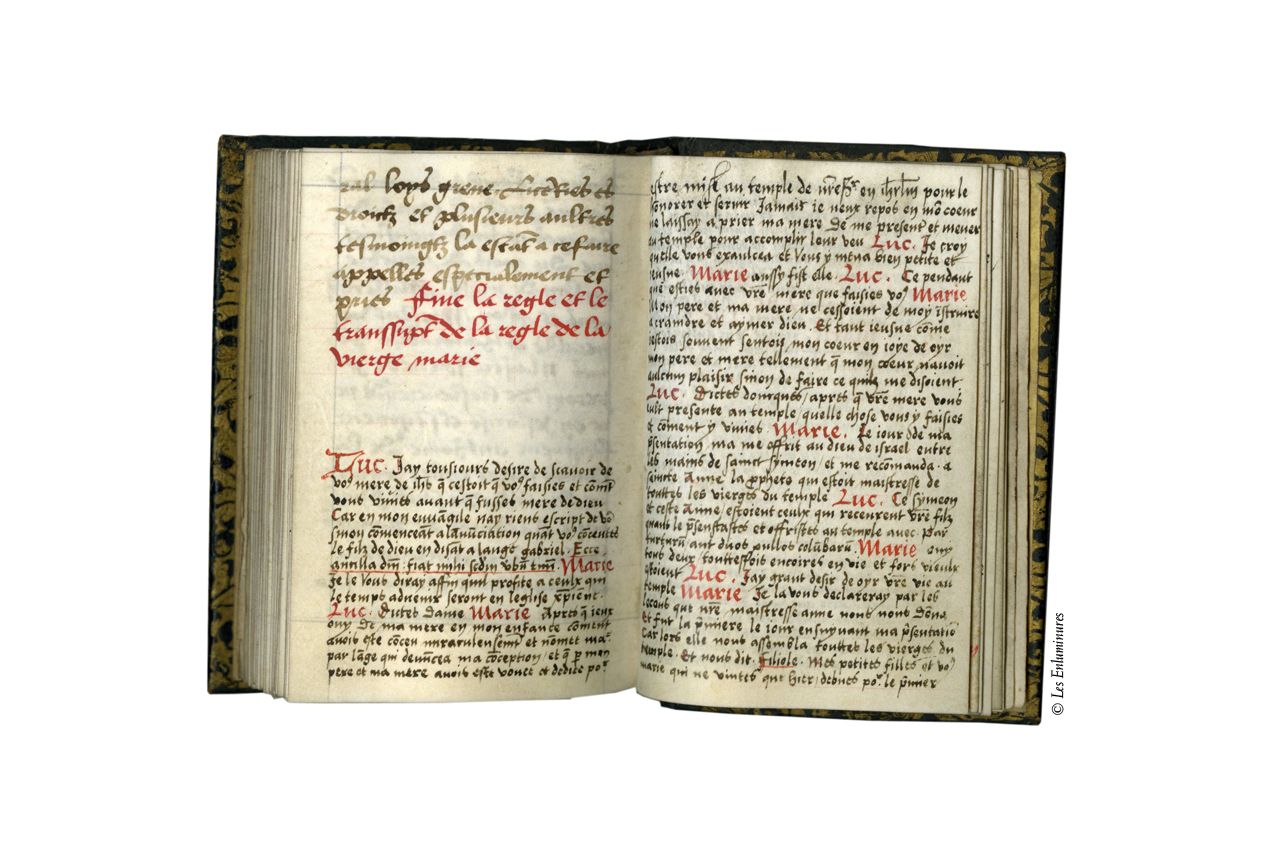 ral loys grene
droitz et plusieurs aultres
tesmoingtz la estãt a ce faire
appelles especialement et
pries Fine la regle et le
transsupt de la regle de la
vierge marie
Luc. Jay tousiours desire de scavoir de
voꝰ mere de ihs q̃ cestoit q̃ voꝰ faisies et cõmẽt
vous vivies avant q̃ fusses mere de dieu
Car en mon euuãgile nay riens escript de voꝰ
sinon cõmenceãt a lanũciation quãt voꝰ conceutes
le filz de dieu en disãt a lange gabriel. Ecce
ancilla dñi: fiat mihi scdm vbũ tuũ. Marie
Je le vous diray affin quil profite a ceulx qui
le temps advenir seront en leglise
Luc. Dictes dame Marie Apres q̃ ieux
ouy de ma mere en mon enfance cõment
auois este cõceu miraculeusemẽt et nõmet ma
par lãge qui denũcea ma cõception, et q̃ p mon
pere et ma mere auois este vouet et dediee poꝰ
estre mise au temple de en ihrlm pour le
honorer et servir Jamais ie neux repos en mõ coeur
ne laissay a prier ma mere de me present et mener
au temple pour accomplir leur veu Luc. Je croy
quelle vous exaulcea et vous y mena bien petite et
ieusne Marie aussy fist elle. Luc. Ce pendant
que esties avec vr̃e mere que faisies voꝰ Marie
Mon pere et ma mere ne cessoient de moy ĩstruire
a craindre et aymer dieu. Et tant ieusne cõme
iestois souvent sentois mon coeur en ioye de oyr
mon pere et mere tellement q̃ mon coeur navoit
aulcun plaisir sinon de faire ce quilz me disoient
Luc. Dictes doncques apres q̃ vr̃e mere vous
eult presente au temple quelle chose vous y faisies
et cõment y vivies Marie. Le iour de ma
p̃sentation ma me offrit au dieu de israel entre
les mains de sainct symeon et me recõmanda a
saincte Anne la prophete qui estoit maistresse de
touttes les vierges du temple Luc. Ce symeon
et ceste Anne estoient ceulx qui receurent vr̃e filz
quant le p̃sentastes et offristes au temple avec Par
turturũ aut duos pullos colũbarũ Marie ouy
tous deux touttesfois encoires en vie et fors vieulx
estoient Luc. Jay grant desir de oyr vr̃e vie au
temple Marie Je la vous declareray par les
lecons que nr̃e maistresse anne nous dõna
Et fut la p̃miere le iour ensuyvant ma p̃sentatiõ
Car lors elle nous assembla touttes les vierges du
temple. Et nous dit. Filiole. Mes petites filles et voꝰ
marie qui ne vintes que hier debues poꝰ le p̃mier
© Les Enluminures